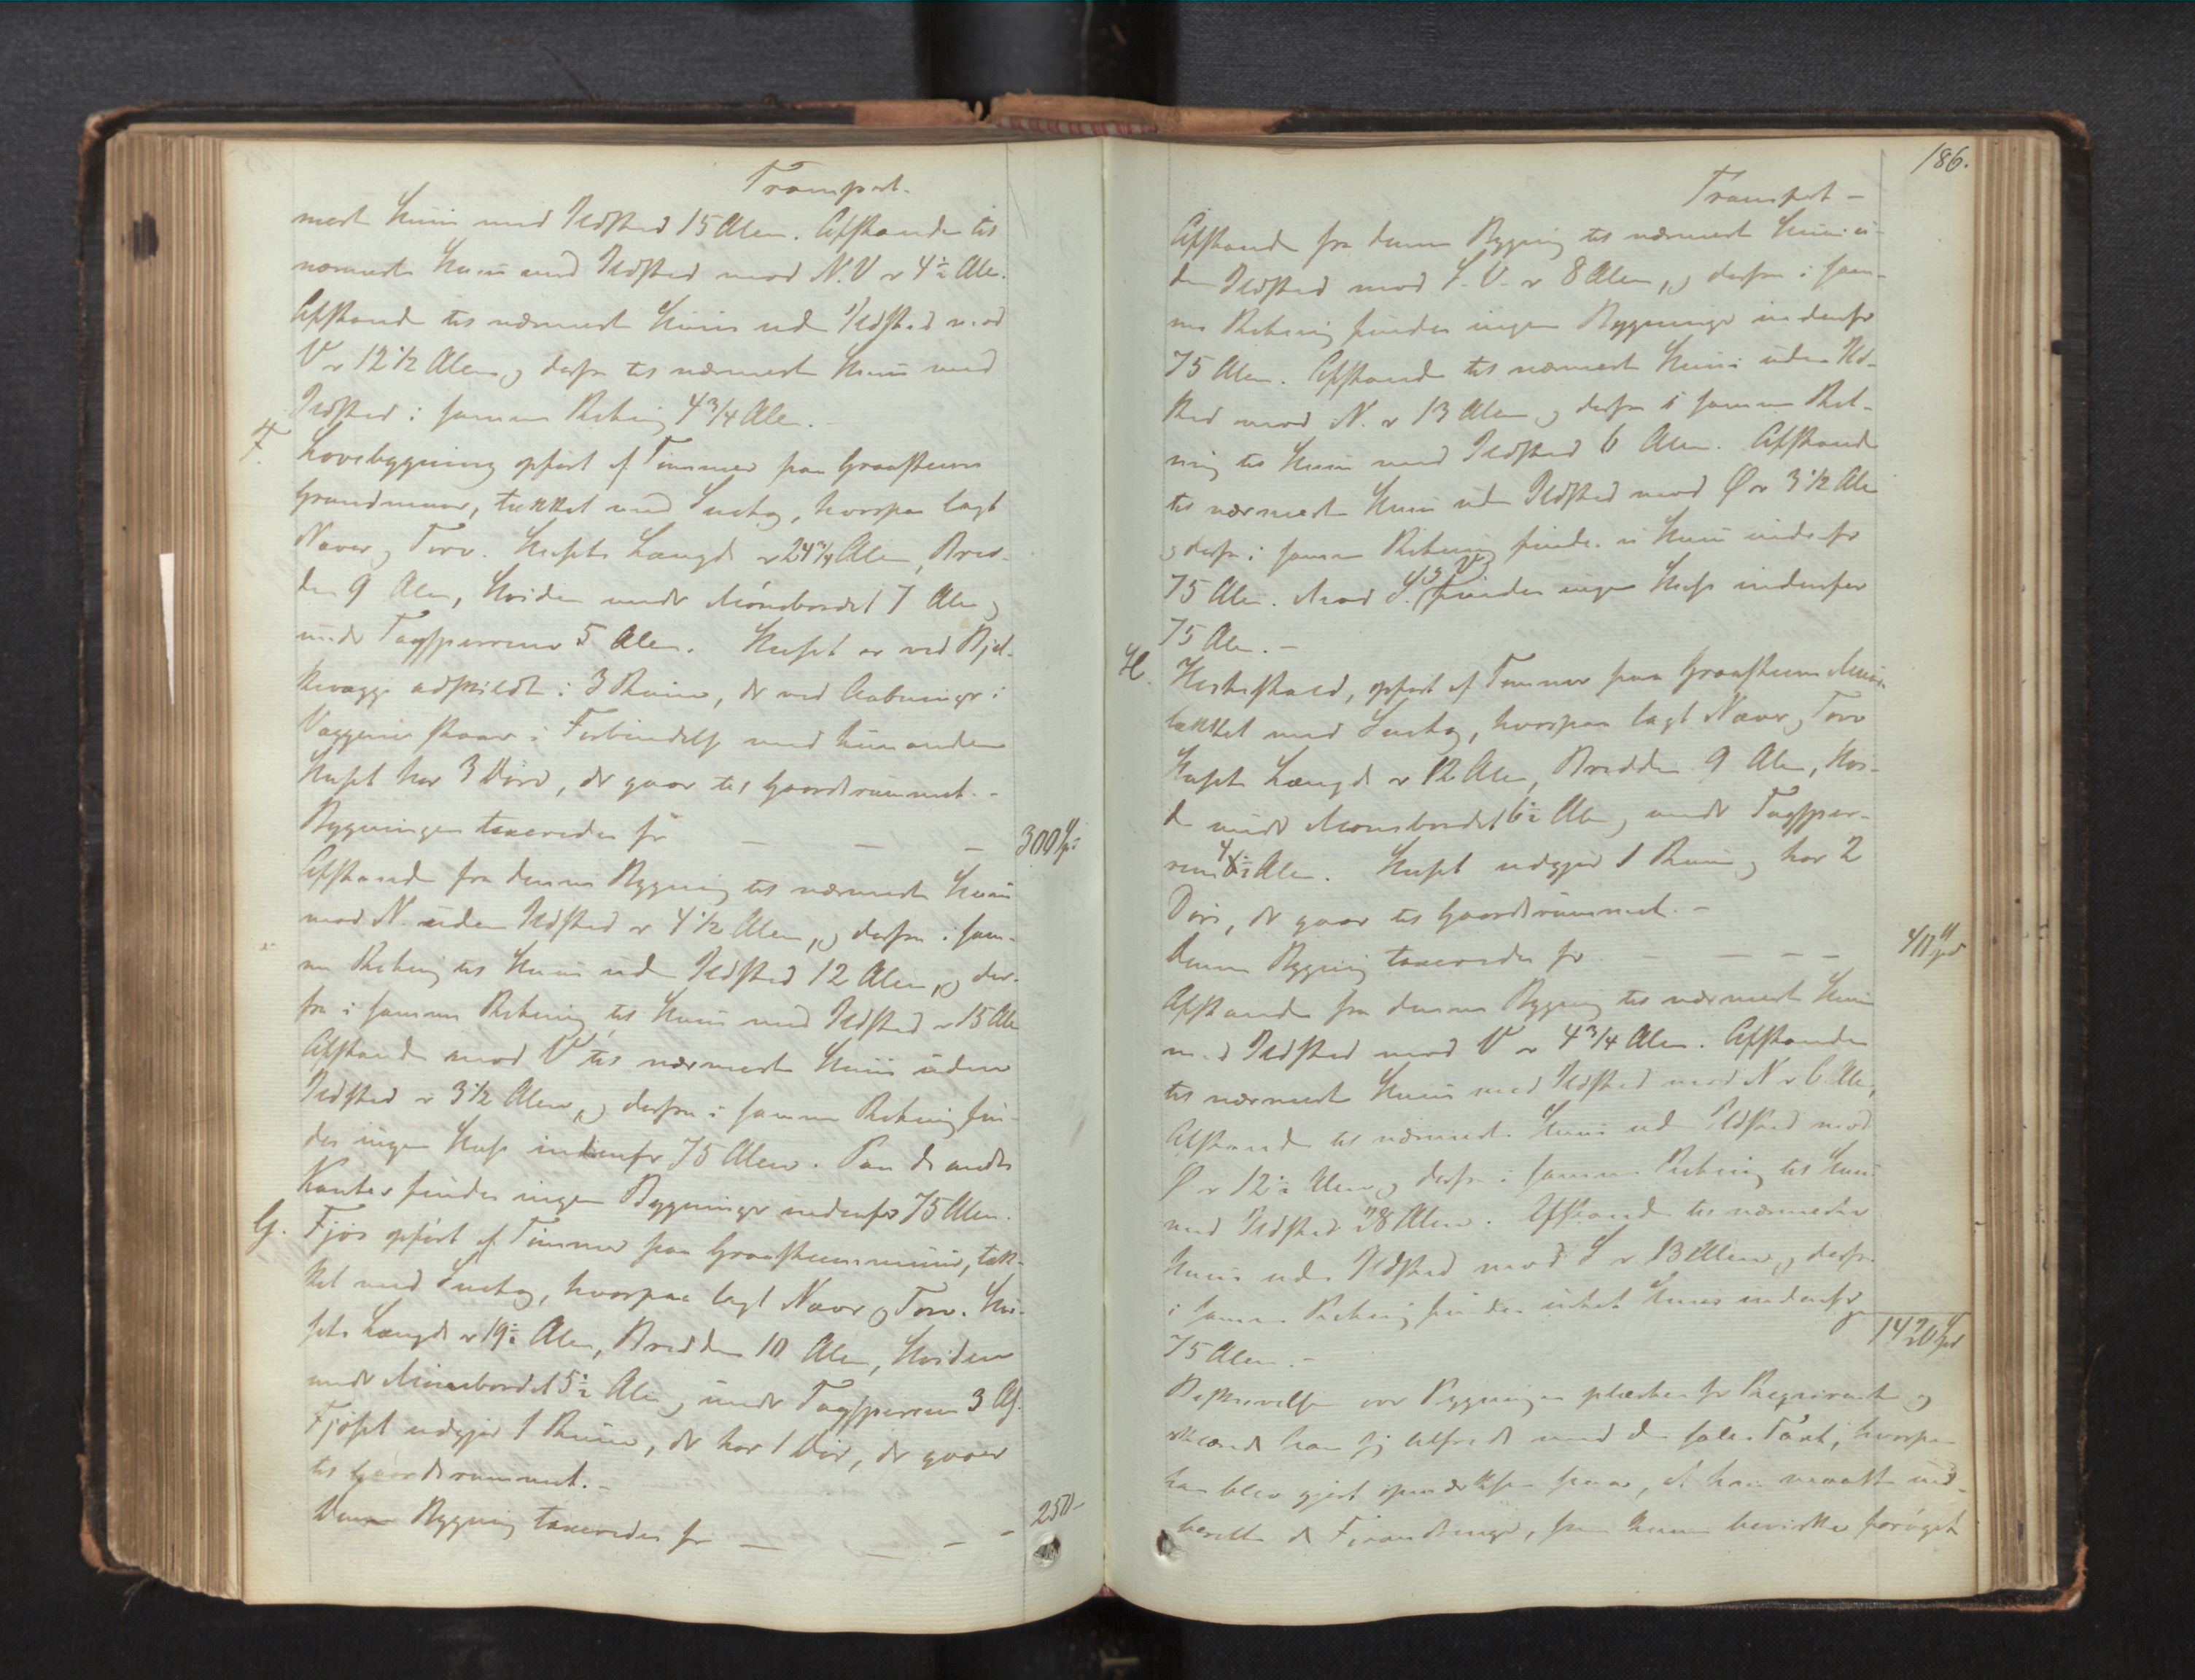 Transport.
mest Huus med Ildsted 15 Alen. Afstanden til
nærmeste Huus med Ildsted mod N.V er 4½ Alen.
Afstand til nærmeste Huus uden Ildsted mod
V er 12 1/2 Alen og derfra til nærmeste Huus med
Ildsted i samme Retning 4 3/4 Alen.
F. Lovebygning opført af Tømmer paa Graasteens
Grundmuur, tækket med Sutag, hvorpaa lagt
Næver og Torv. Husets Længde er 24 3/4 Alen, Bred-
den 9 Alen, Høiden under Mønsbordet 7 Alen og
under Tagsperrerne 5 Alen. Huset er ved Bjel-
kevægge adskildt i 3 Rum, der ved Aabninger i
Væggene staaer i Forbindelse med hinanden
Huset har 3 Døre, der gaar til Gaardsrummet. -
Bygningen taxeredes for — — — 300 Sp:
Afstand fra denne Bygning til nærmeste Huus
mod N. uden Ildsted er 4 1/2 Alen, og derfra i sam-
me Retning til Huus uden Ildsted 12 Alen, og der-
fra i samme Retning til Huus med Ildsted er 15 Alen
Afstand mod V til nærmeste Huus uden
Ildsted er 3 1/2 Alen, og derfra i samme Retning fin-
des ingen Huse indenfor 75 Alen. Paa de andre
Kanter findes ingen Bygninger indenfor 75 Alen.
G. Fjøs opført af Tømmer paa Graasteensmuur, tæk-
ket med Sutag, hvorpaa lagt Næver og Torv. Hu-
sets Længde er 19½ Alen, Bredden 10 Alen, Høiden
under Mønsbordet 5½ Alen og under Tagsperrerne 3 Al.
Fjøset udgjør 1 Rum, der har 1 Dør, der gaaer
til Gaardsrummet. -
Denne Bygning taxeredes for — — — — 250 -
186.
Transport -
Afstand fra denne Bygning til nærmeste Huus u-
den Ildsted mod S.V. er 8 Alen, og derfra i sam-
me Retning findes ingen Bygninger indenfor
75 Alen. Afstand til nærmeste Huus uden Ild-
sted mod N. er 13 Alen og derfra i samme Ret-
ning til Huus med Ildsted 6 Alen. Afstand
til nærmeste Huus uden Ildsted mod Ø er 3 1/2 Alen
og derfra i samme Retning findes ei Huus indenfor
75 Alen. Mod S. og V findes ingen Huse indenfor
75 Alen. -
H. Hestestald, opført af Tømmer paa Graasteens Muur
tækket med Sutag, hvorpaa lagt Næver og Torv
Husets Længde er 12 Alen, Bredden 9 Alen, Høi-
de under Mønsbordet 6½ Alen og under Tagsper-
rerne 4½ Alen. Huset udgjør 1 Rum og har 2
Døre, der gaar til Gaardsrummet. -
Denne Bygning taxeredes for - — — — 40 Spd
Afstanden fra denne Bygning til nærmeste Huus
med Ildsted mod V er 4 3/4 Alen. Afstanden
til nærmeste Huus med Ildsted mod N er 6 Alen,
Afstand til nærmeste Huus uden Ildsted mod
Ø er 12½ Alen og derfra i samme Retning til Huus
med Ildsted 28 Alen. Afstand til nærmeste
Huus uden Ildsted mod S er 13 Alen, og derfra
i samme Retning findes intet Huus indenfor
75 Alen. - 1420 Spd
Beskrivelsen over Bygningen oplæstes for Reqvirenten og
erklærede han sig tilfreds med den satte Taxt, hvorpaa
han blev gjort opmærksom paa, at han maatte ind-
berette de Forandringer, som kunne bevirke forøget